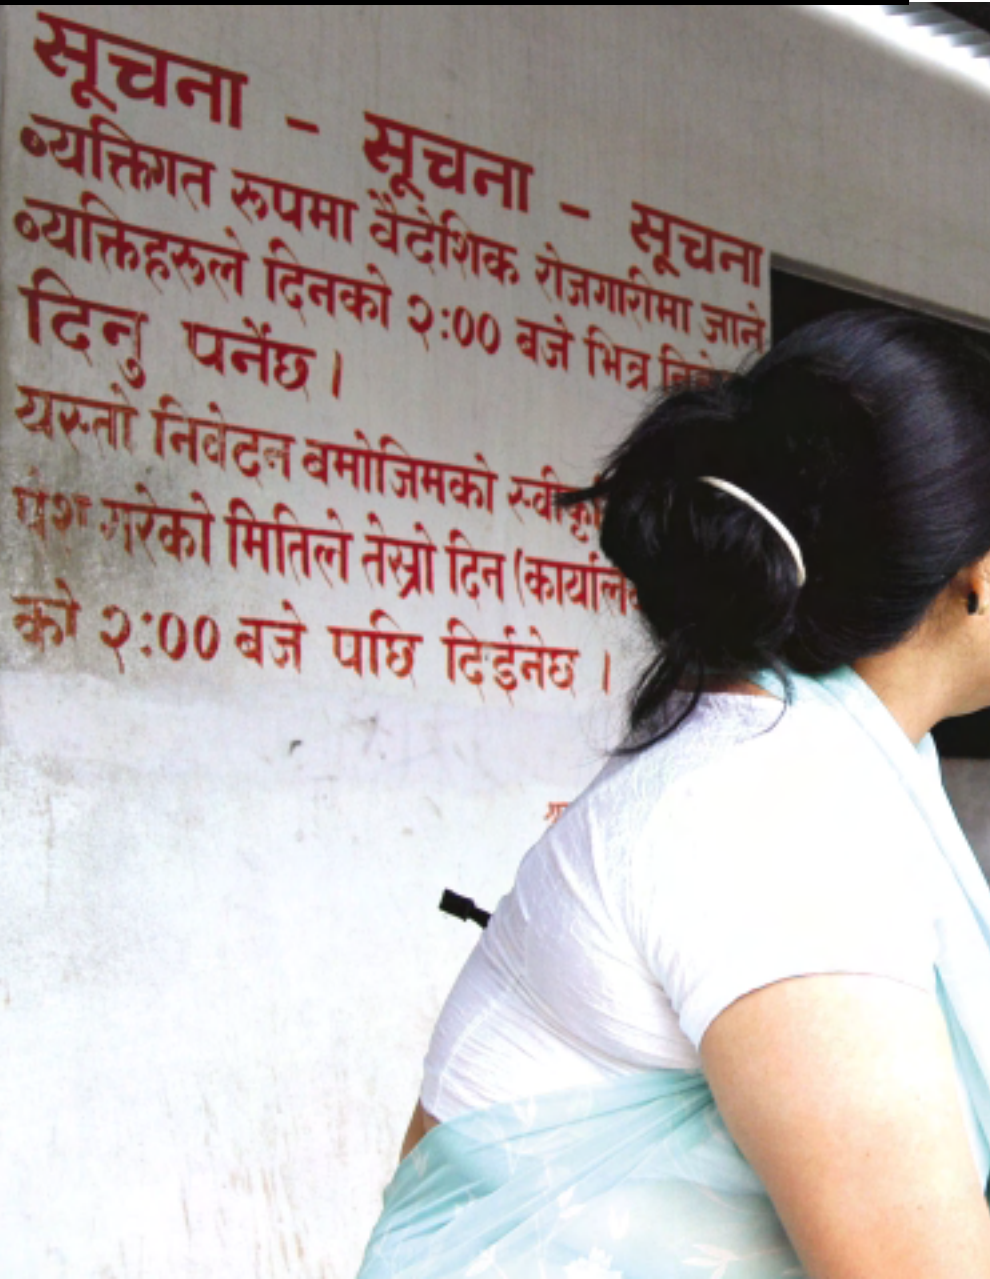 सूचना - सूचना - सूचना
•व्यक्तिगत रूपमा वैदेशिक रोजगारीमा जाने
•व्यक्तिहरूले दिनको २:०० बजे भित्र
दिनु पर्नेछ ।
यस्तो निवेदन बमोजिमको
पेश गरेको मितिले तेस्रो दिन
को २:०० बजे पछि दिईनेछ ।